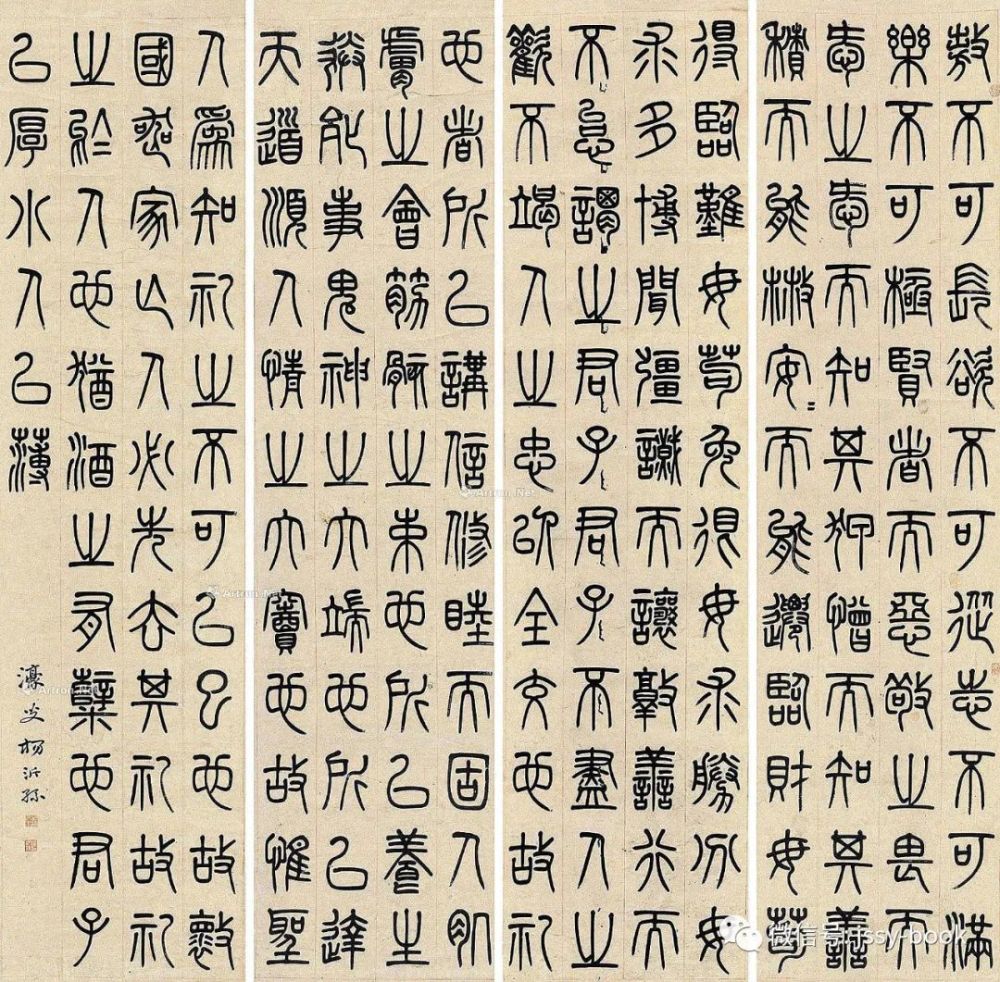 敖不可長欲不可從志不可滿
樂不可極賢者而惡敬之畏而
愛之愛而知其狎憎而知其善
積而能散安=而能遷臨財毋苟
得臨難毋苟免很毋求勝分毋
求多博聞彊識而讓敦善行而
不怠謂之君子君子不盡人之
歡不竭人之忠以全交也故礼
也者所以講信修睦而固人肌
膚之會筋骸之束也所以養生
送死事鬼神之大端也所以達
天道順人情之大竇也故惟聖
人爲知礼之不可以已也故壞
國喪家亡人必先去其礼故礼
之於人也猶酒之有糱也君子
以厚小人以薄
濠叟楊沂孫
微信号: jssy-book
Artron.Net